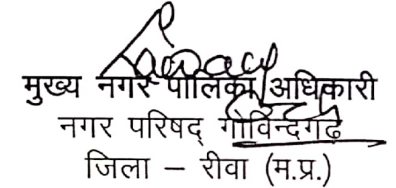 मुख्य नगर पालिका अधिकारी
नगर परिषद् गोविन्दगढ़
जिला – रीवा (म.प्र.)